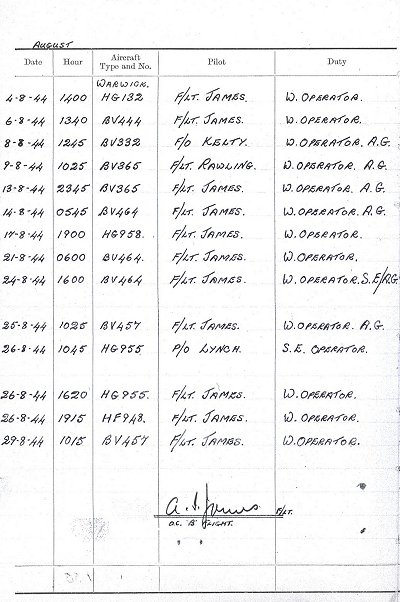 AUGUST
Date Hour Aircraft Type and No. Pilot Duty
WARWICK.
4-8-44 1400 HG132 F/LT. JAMES. W. OPERATOR.
6-8-44 1340 BV444 F/LT. JAMES. W. OPERATOR.
8-8-44 1245 BV332 F/O KELTY. W. OPERATOR, A.G.
9-8-44 1025 BV365 F/LT. RAWLING. W. OPERATOR. A.G.
13-8-44 2345 BV365 F/LT. JAMES. W. OPERATOR. A.G.
14-8-44 0545 BV464 F/LT. JAMES. W. OPERATOR. A.G.
17-8-44 1900 HG958. F/LT. JAMES. W. OPERATOR.
21-8-44 0600 BV464. F/LT. JAMES. W. OPERATOR.
24-8-44 1600 BV464 F/LT. JAMES. W. OPERATOR. S.E/A.G.
25-8-44 1025 BV457 F/LT. JAMES. W. OPERATOR. A.G.
26-8-44 1045 HG955 P/O LYNCH. S.E. OPERATOR.
26-8-44 1620 HG955. F/LT. JAMES. W. OPERATOR.
26-8-44 1915 HF948. F/LT. JAMES. W. OPERATOR.
29-8-44 1015 BV457 F/LT. JAMES. W. OPERATOR.
A. I. James F/LT.
O.C. 'B' FLIGHT.